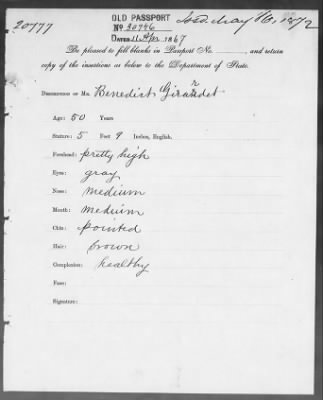 20777
OLD PASSPORT
No 30746
DATED 11 Apr 1867
Issd May 16, 1872
Be pleased to fill blanks in Passport No. , and retain
copy of the insertions as below to the Department of State.
DESCRIPTION OF MR. Benedict Girardet
AGE: 50 YEARS
STATURE: 5 FEET 9 Inches, English.
FOREHEAD: pretty high
EYES: gray
NOSE: medium
MOUTH: medium
CHIN: pointed
HAIR: brown
COMPLEXION: healthy
FACE:
SIGNATURE: